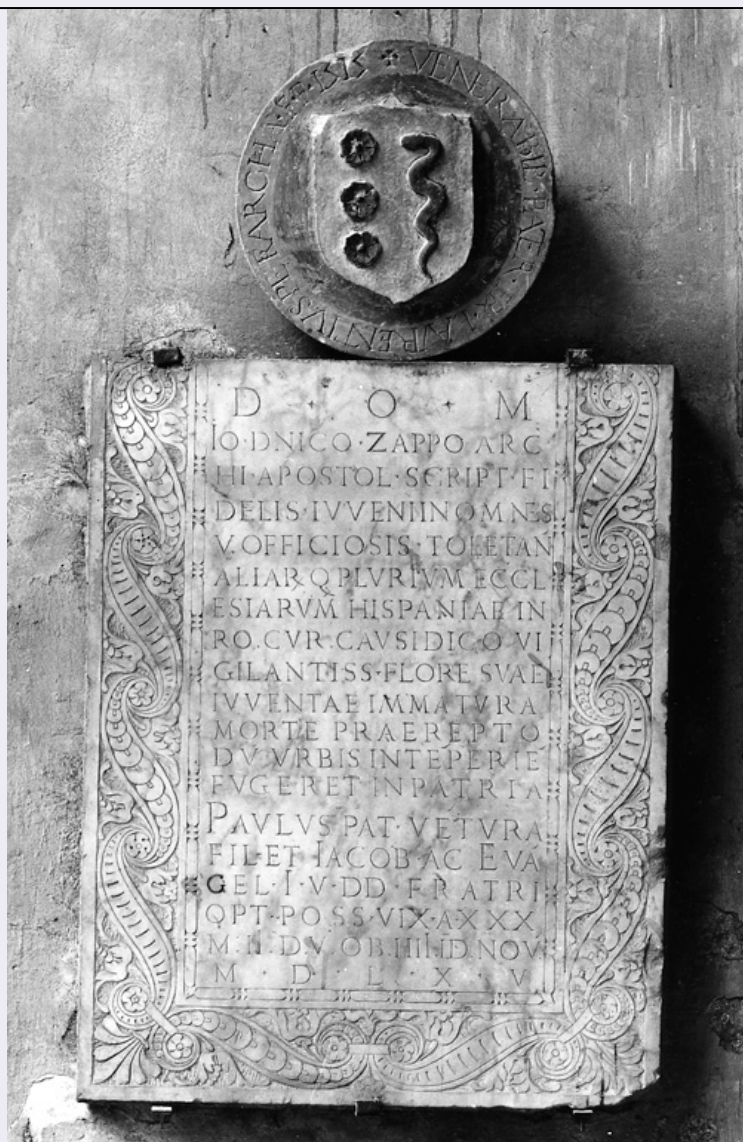 ✠ VENERABIL · PATER · FR · LAVRENTIVS
D · O · M
IO · DNICO · ZAPPO ARC
HI · APOSTOL · SCRIPT · FI
DELIS · IVVENI IN OMNES
V. OFFICIOSIS · TOLETAN
ALIARQ PLVRIVM ECCL
ESIARVM HISPANIAE IN
RO. CVR. CAVSIDICO VI
GILANTISS · FLORE SVAE
IVVENTAE IMMATVRA
MORTE PRAEREPTO
DV VRBIS INTEPERIE
FVGERET IN PATRIA
PAVLVS PAT · VETVRA
FIL · ET IACOB · AC EVA
GEL · I · V · DD · FRATRI
OPT · POSS · VIX · A · XXX
M · II · D · V · OB · IIII · ID · NOV
M · D · L · X · V